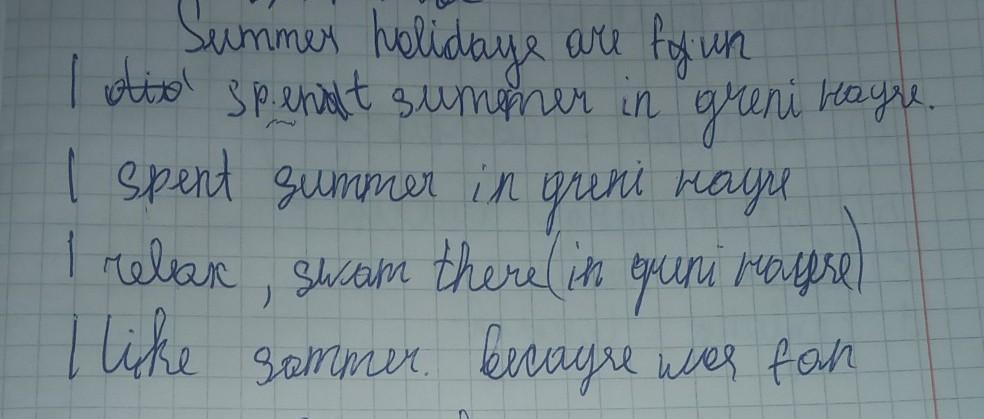 Summer holidays are fyun
I did spent summer in greni hayse.
I spent summer in greni hayse
I relax, swam there (in greni hayse)
I like sommer. becayse was fan